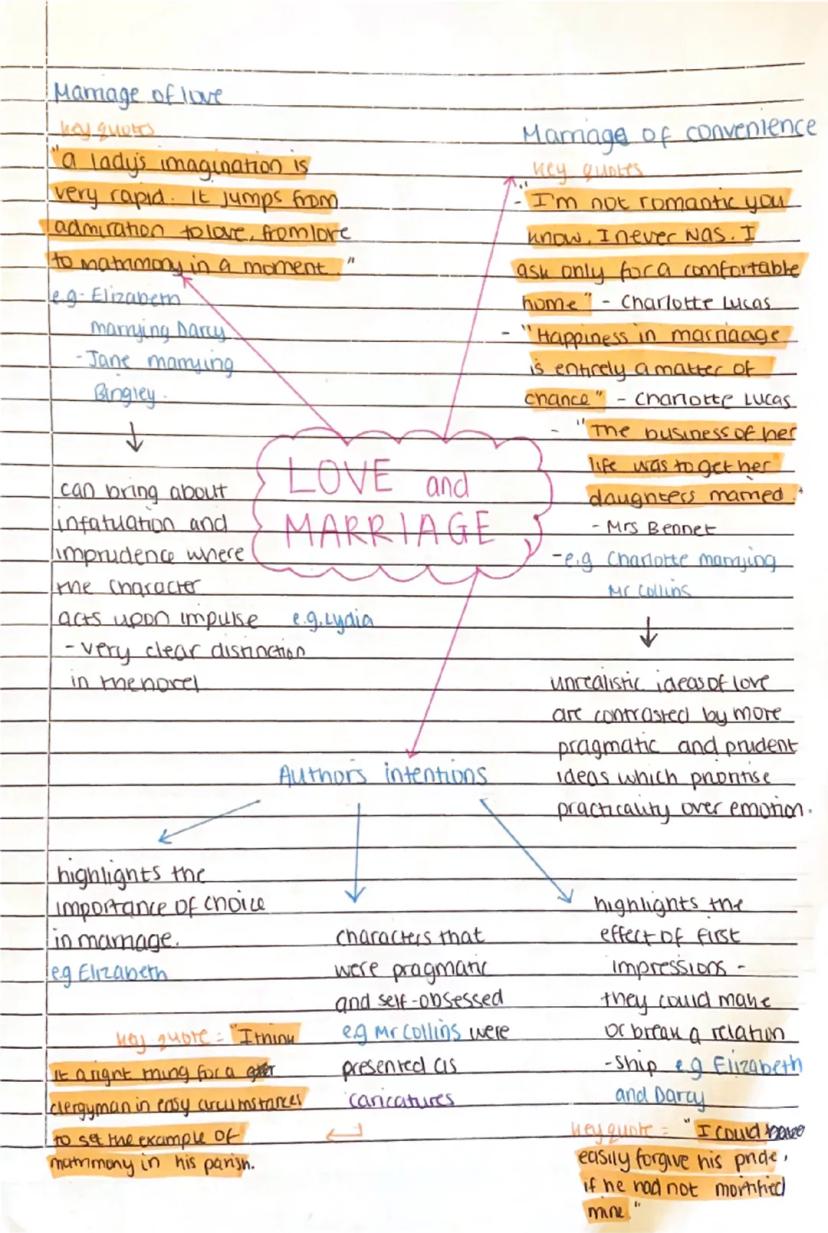 Marriage of love
key quotes
"a lady's imagination is
very rapid. It jumps from
admiration to love, from love
to matrimony in a moment."
e.g- Elizabeth
marrying Darcy
- Jane marrying
Bingley.
can bring about
infatuation and
imprudence where
the character
acts upon impulse e.g. Lydia
- very clear distinction
in the novel
Marriage of convenience
key quotes
- "I'm not romantic you
know, I never was. I
ask only for a comfortable
home" - Charlotte Lucas
- "Happiness in marriaage
is entirely a matter of
chance" - Charlotte Lucas
- "The business of her
life was to get her
daughters married."
- Mrs Bennet
- e.g Charlotte marrying
Mr Collins
unrealistic ideas of love
are contrasted by more
pragmatic and prudent
ideas which prioritise
practicality over emotion.
LOVE and
MARRIAGE
Authors intentions
highlights the
importance of choice
in marriage.
e.g Elizabeth
characters that
were pragmatic
and self-obsessed
e.g Mr Collins were
presented as
caricatures
key quote = "I think
it a right thing for a
clergyman in easy circumstances
to set the example of
matrimony in his parish.
highlights the
effect of first
impressions -
they could make
or break a relation
-ship e.g Elizabeth
and Darcy
key quote = "I could have
easily forgive his pride,
if he had not mortified
mine."